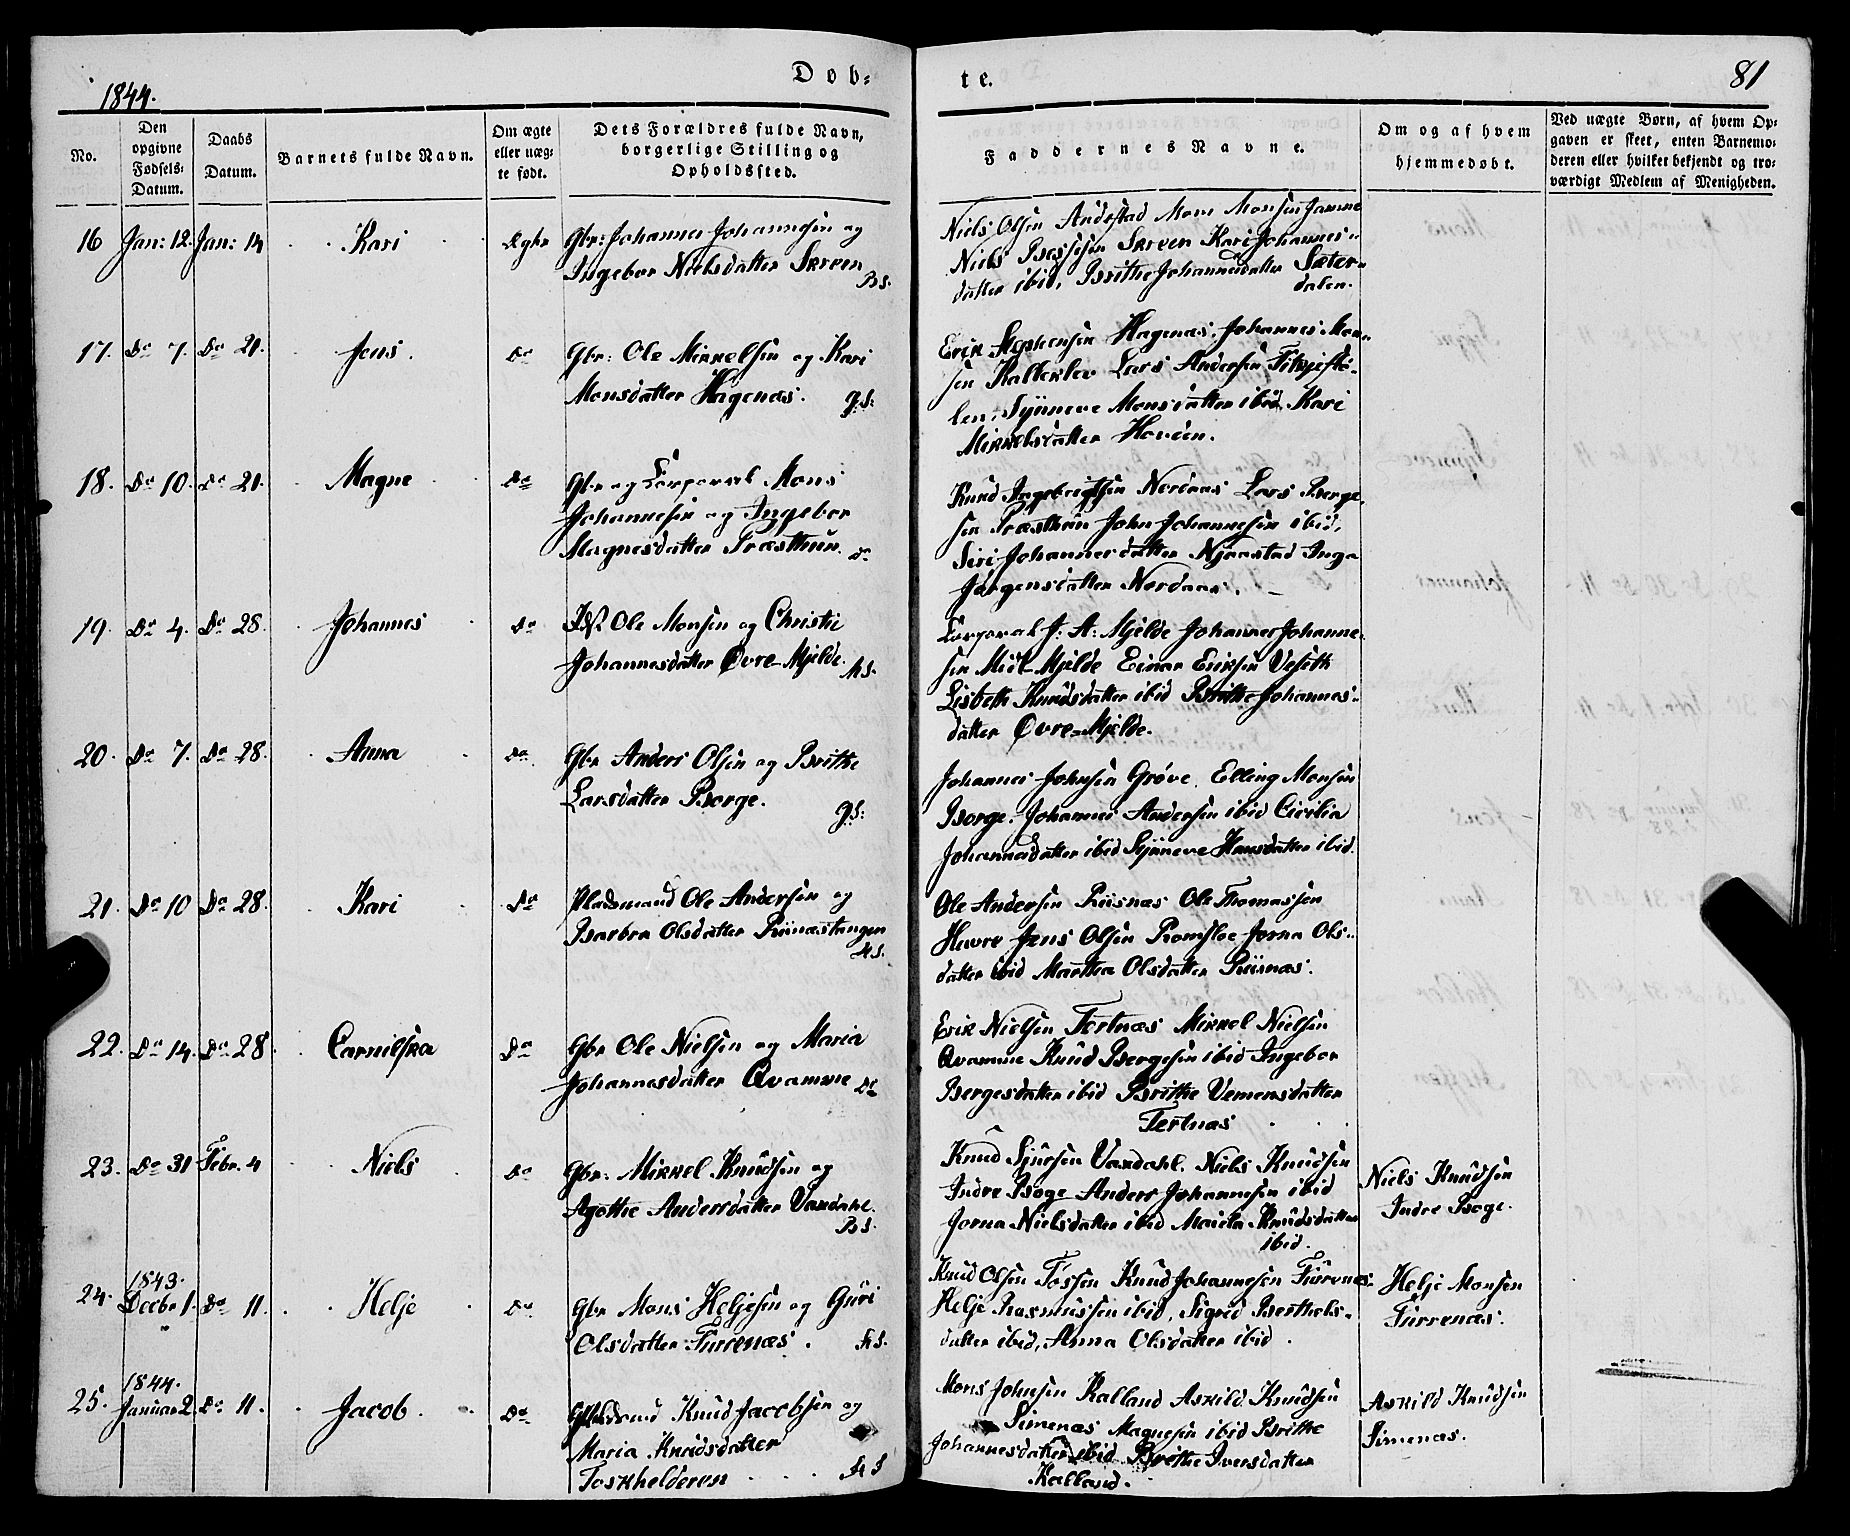 1844.
Døb-
te.
81
No.
Den
opgivne
Fødsels-
Datum.
Daabs
Datum.
Barnets fulde Navn.
Om ægte
eller uæg-
te født.
Dets Forældres fulde Navn,
borgerlige Stilling og
Opholdssted.
Faddernes Navne.
Om og af hvem
hjemmedøbt.
Ved uægte Børn, af hvem Op-
gaven er skeet, enten Barnemo-
deren eller hvilket bekjendt og tro-
værdigt Medlem af Menigheden.
16 Jan: 12. Jan: 14 Kari Ægte Gbr: Johannes Johannesen og
Ingebor Nielsdatter Skreen
B.S.
Niels Olsen Andestad Mons Monsen Jamne
Niels Børgesen Skreen Kari Johannes-
datter ibid, Brithe Johannesdatter Sæter-
dalen.
17. Do 7. Do 21. Jens. Do Gbr: Ole Mikkelsen og Kari
Monsdatter Hagenæs. G.S:
Erik Stephensen Hagenæs. Johannes Mon-
sen Kalleklev Lars Andersen
len. Synneve Monsdatter ibid Kari
Mikkelsdatter Hovden.
18. Do 10. Do 21. Magne Do Gbr og Corporal Mons
Johannesen og Ingebor
Magnesdatter Præsthun. Do
Knud Ingebrigtsen Nordaas Lars Børge-
sen Præsthun John Johannesen ibid,
Siri Johannesdatter Njaastad Inga
Jørgensdatter Nordaas.
19. Do 4. Do 28. Johannes Do Ole Monsen og Christi
Johannesdatter Øvre-Mjelde. M.S.
Corporal J: A: Mjelde Johannes Johanne-
sen Midt-Mjelde Einar Eriksen Veseth
Lisbeth Knudsdatter ibid Brithe Johannes-
datter Øvre-Mjelde.
20. Do 7. Do 28. Anna Do Gbr Anders Olsen og Brithe
Larsdatter Borge.
G.S:
Johannes Johnsen Grøve. Elling Monsen
Borge. Johannes Andersen ibid Cicilia
Johannesdatter ibid Synneve Hansdatter ibid.
21. Do 10 Do 28. Kari Do Pladsmand Ole Andersen og
Barbra Olsdatter Riisnæstangen
H.S.
Ole Andersen Riisnæs Ole Thomassen
Havre Jens Olsen Romsloe Jorna Ols-
datter ibid Martha Olsdatter Riisnæs.
22. Do 14. Do 28. Carnilska Do Gbr Ole Nielsen og Maria
Johannesdatter Qvamme Do
Erik Nielsen Tertnæs Mikkel Nielsen
Qvamme Knud Børgesen ibid Ingebor
Børgesdatter ibid Brithe Vemensdatter
Tertnæs
23. Do 31 Febr. 4 Niels Do Gbr: Mikkel Knudsen og
Agothe Andersdatter Vaxdahl.
B.S.
Knud Sjursen Vaxdahl. Niels Knudsen
Indre Boge Anders Johannesen ibid
Jorna Nielsdatter ibid Marita Knudsdatter
ibid.
Niels Knudsen
Indre Boge.
24. 1843.
Decbr 1. Do 11. Helje Do Gbr Mons Heljesen og Guri
Olsdatter Furrenæs. H.S.
Knud Olsen Fossen Knud Johannesen Furrenæs
Helje Rasmussen ibid, Sigrid Berthels-
datter ibid, Anna Olsdatter ibid.
Helje Monsen
Furrenæs.
25. 1844.
Januar 2. Do 11. Jacob. Do Knud Jacobsen og
Maria Knudsdatter
Toskhelderen H.S
Mons Johnsen Kalland Askild Knudsen
Simenæs Magnesen ibid Brithe
Johannesdatter ibid Brithe Iversdatter
Kalland.
Askild Knudsen
Simenæs.